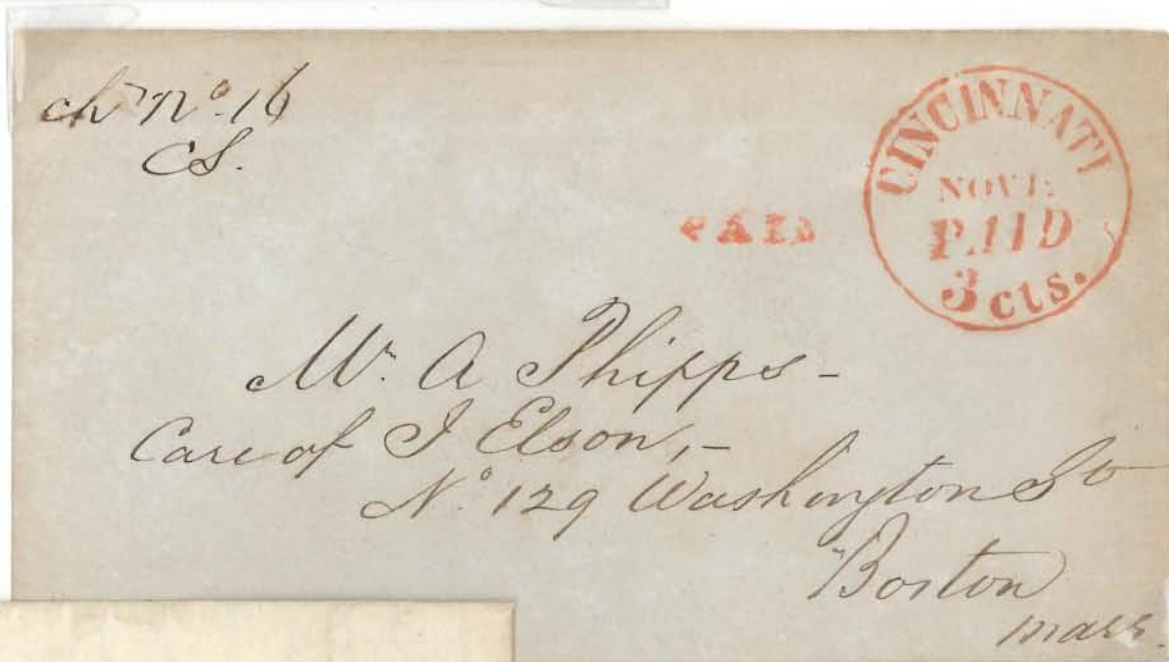 ch No. 16
CS.
CINCINNATI
NOV
PAID
3 cts.
PAID
Mr. A Phipps -
Care of J Elson, -
No. 129 Washington St
Boston
Mass.